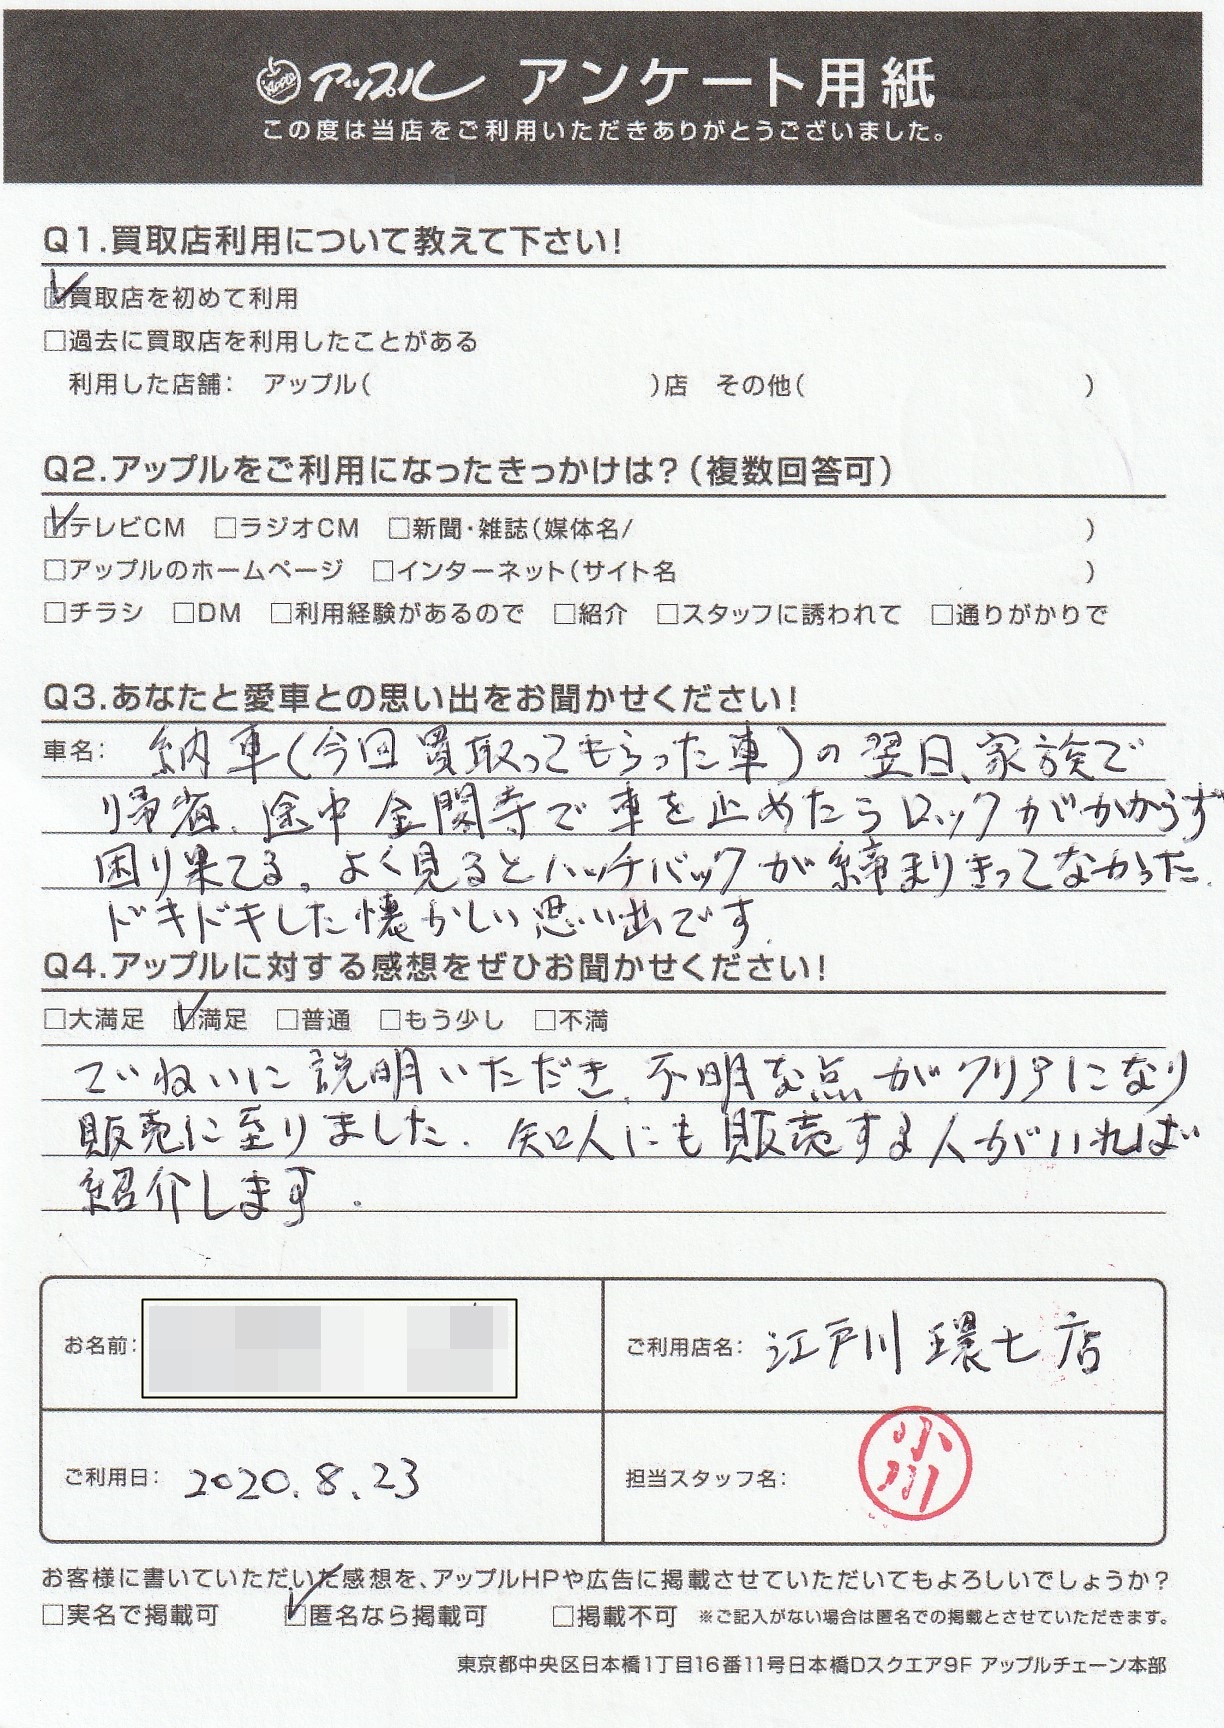 アップル アンケート用紙
この度は当店をご利用いただきありがとうございました。
Q1.買取店利用について教えて下さい!
☑買取店を初めて利用
□過去に買取店を利用したことがある
利用した店舗: アップル( )店 その他( )
Q2.アップルをご利用になったきっかけは?(複数回答可)
☑テレビCM □ラジオCM □新聞・雑誌(媒体名/ )
□アップルのホームページ □インターネット(サイト名 )
□チラシ □DM □利用経験があるので □紹介 □スタッフに誘われて □通りがかりで
Q3.あなたと愛車との思い出をお聞かせください!
車名: 納車(今回買取ってもらった車)の翌日、家族で
帰省、途中金閣寺で車を止めたらロックがかからず
困り果てる。よく見るとハッチバックが締まりきってなかった.
ドキドキした懐かしい思い出です.
Q4.アップルに対する感想をぜひお聞かせください!
□大満足 ☑満足 □普通 □もう少し □不満
ていねいに説明いただき、不明な点がクリアになり
販売に至りました. 知人にも販売する人がいれば
紹介します.
お名前:
ご利用店名: 江戸川環七店
ご利用日: 2020.8.23
担当スタッフ名: 小川
お客様に書いていただいた感想を、アップルHPや広告に掲載させていただいてもよろしいでしょうか?
□実名で掲載可 ☑匿名なら掲載可 □掲載不可 ※ご記入がない場合は匿名での掲載とさせていただきます。
東京都中央区日本橋1丁目16番11号日本橋Dスクエア9F アップルチェーン本部